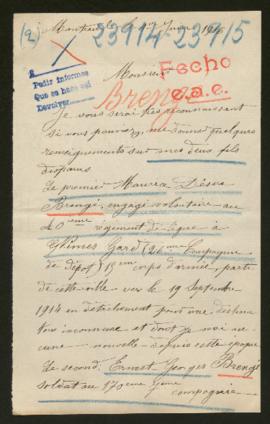 (2)
23914-23915
Montreuil le 27 Juin 1916
X
Pedir informes
Que se hace asi
Devolver
Monsieur
Fecho
c.a.e.
Brengé
Je vous serai très reconnaissant
si vous pouvez me donner quelques
renseignements sur mes deux fils
disparus
Le premier Maurice Désiré
Brengé, engagé volontaire au
40ème régiment de ligne à
Nimes Gard (26me Compagnie
de dépôt) 15eme corps d'armée, partie
de cette ville vers le 19 Septembre
1914 en détachement pour une destina
tion inconnue et dont je n'ai au-
cune nouvelle depuis cette époque
Le second Ernest Georges Brengé
soldat au 170eme
compagnie